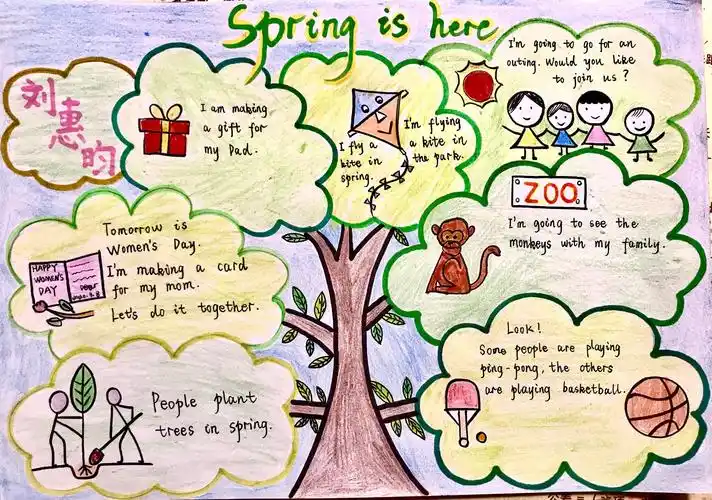 Spring is here
刘
惠
昀
I am making
a gift for
my Dad.
I fly a
kite in
spring.
I'm flying
a kite in
the park.
I'm going to go for an
outing. Would you like
to join us?
Tomorrow is
Women's Day.
I'm making a card
for my mom.
Let's do it together.
HAPPY
WOMEN'S
DAY
Dear
ZOO
I'm going to see the
monkeys with my family.
People plant
trees in spring.
Look!
Some people are playing
ping-pong, the others
are playing basketball.